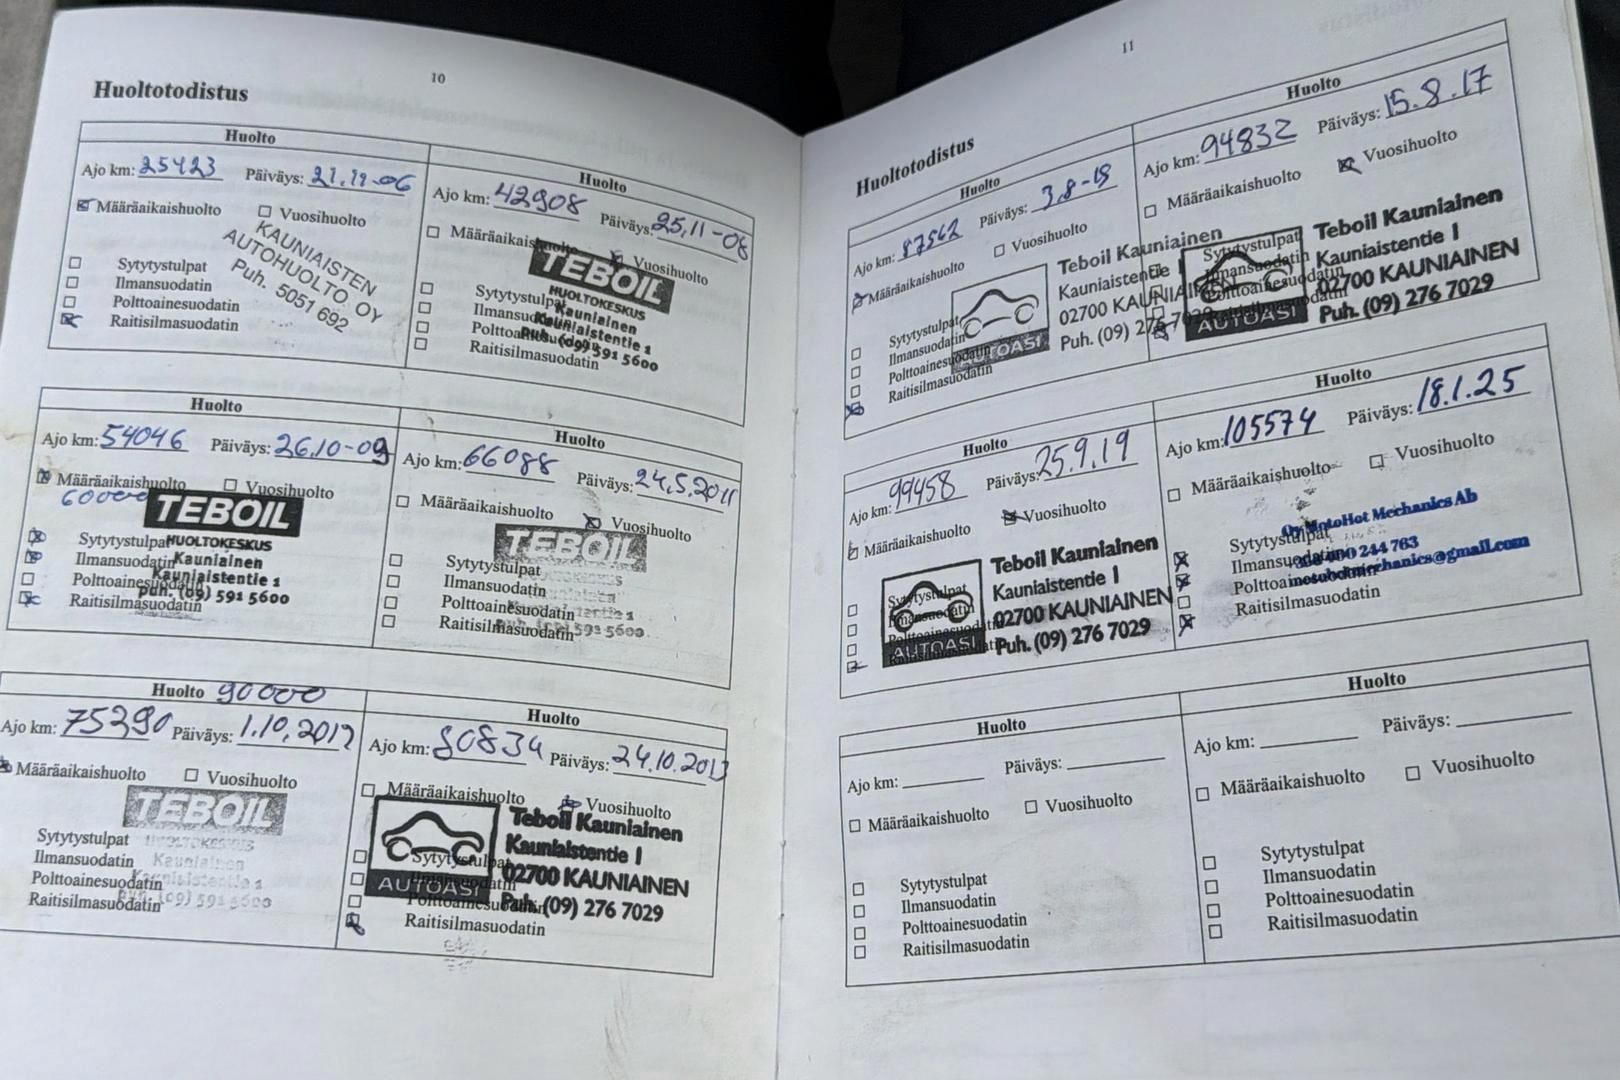 10
Huoltotodistus
Huolto
Ajo km: 25423 Päiväys: 21.11-06
Määräaikaishuolto Vuosihuolto
KAUNIAISTEN
AUTOHUOLTO. OY
Puh. 5051 692
Sytytystulpat
Ilmansuodatin
Polttoainesuodatin
Raitisilmasuodatin
Huolto
Ajo km: 42908 Päiväys: 25.11-08
Määräaikaishuolto Vuosihuolto
TEBOIL
HUOLTOKESKUS
Kauniainen
Kauniaistentie 1
puh. (09) 591 5600
Sytytystulpat
Ilmansuodatin
Polttoainesuodatin
Raitisilmasuodatin
Huolto
Ajo km: 54046 Päiväys: 26.10-09
Määräaikaishuolto Vuosihuolto
60000
TEBOIL
HUOLTOKESKUS
Kauniainen
Kauniaistentie 1
puh. (09) 591 5600
Sytytystulpat
Ilmansuodatin
Polttoainesuodatin
Raitisilmasuodatin
Huolto
Ajo km: 66088 Päiväys: 24.5.2011
Määräaikaishuolto Vuosihuolto
TEBOIL
Sytytystulpat
Ilmansuodatin
Polttoainesuodatin
Raitisilmasuodatin
Huolto 90000
Ajo km: 75290 Päiväys: 1.10.2012
Määräaikaishuolto Vuosihuolto
TEBOIL
HUOLTOKESKUS
Kauniainen
Kauniaistentie 1
puh. (09) 591 5600
Sytytystulpat
Ilmansuodatin
Polttoainesuodatin
Raitisilmasuodatin
Huolto
Ajo km: 80834 Päiväys: 24.10.2013
Määräaikaishuolto Vuosihuolto
AUTOASI
Teboil Kauniainen
Kauniaistentie 1
02700 KAUNIAINEN
Puh. (09) 276 7029
Sytytystulpat
Ilmansuodatin
Polttoainesuodatin
Raitisilmasuodatin
11
Huoltotodistus
Huolto
Ajo km: 87562 Päiväys:
Määräaikaishuolto Vuosihuolto
AUTOASI
Teboil Kauniainen
Kauniaistentie 1
02700 KAUNIAINEN
Puh. (09) 276 7029
Sytytystulpat
Ilmansuodatin
Polttoainesuodatin
Raitisilmasuodatin
Huolto
Ajo km: 94832 Päiväys: 15.8.17
Määräaikaishuolto Vuosihuolto
AUTOASI
Teboil Kauniainen
Kauniaistentie 1
02700 KAUNIAINEN
Puh. (09) 276 7029
Sytytystulpat
Ilmansuodatin
Polttoainesuodatin
Huolto
Ajo km: 99458 Päiväys: 25.9.19
Määräaikaishuolto Vuosihuolto
AUTOASI
Teboil Kauniainen
Kauniaistentie 1
02700 KAUNIAINEN
Puh. (09) 276 7029
Sytytystulpat
Ilmansuodatin
Polttoainesuodatin
Raitisilmasuodatin
Huolto
Ajo km: 105574 Päiväys: 18.1.25
Määräaikaishuolto Vuosihuolto
Oy MotoHot Mechanics Ab
244 763
Sytytystulpat
Ilmansuodatin
Polttoainesuodatin
Raitisilmasuodatin
Huolto
Ajo km: Päiväys:
Määräaikaishuolto Vuosihuolto
Sytytystulpat
Ilmansuodatin
Polttoainesuodatin
Raitisilmasuodatin
Huolto
Ajo km: Päiväys:
Määräaikaishuolto Vuosihuolto
Sytytystulpat
Ilmansuodatin
Polttoainesuodatin
Raitisilmasuodatin